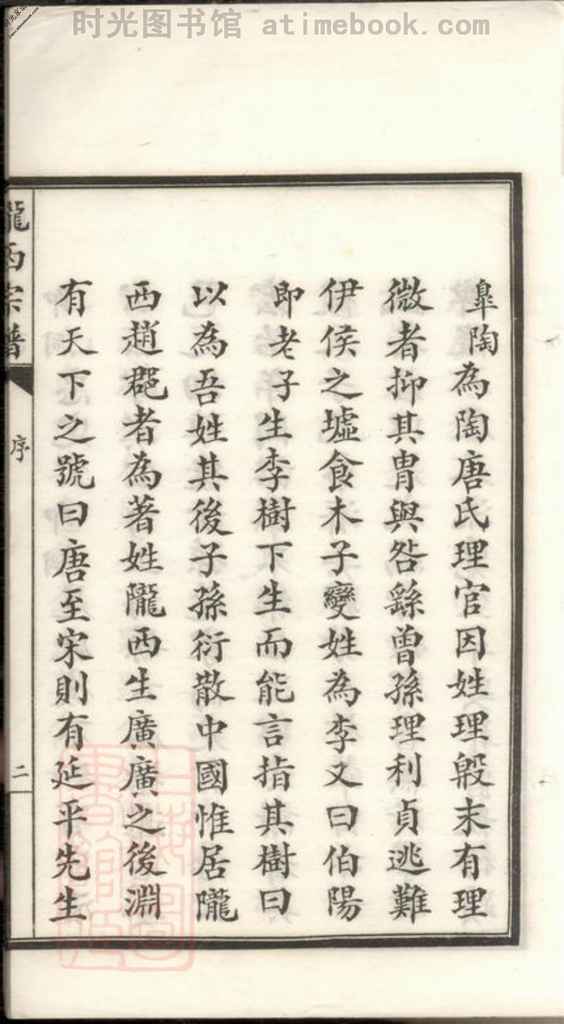 时光图书馆 atimebook.com
皐陶為陶唐氏理官因姓理殷末有理
微者抑其冑與咎繇曾孫理利貞逃難
伊侯之墟食木子變姓為李又曰伯陽
即老子生李樹下生而能言指其樹曰
以為吾姓其後子孫衍散中國惟居隴
西趙郡者為著姓隴西生廣廣之後淵
有天下之號曰唐至宋則有延平先生
隴西宗譜
序
二